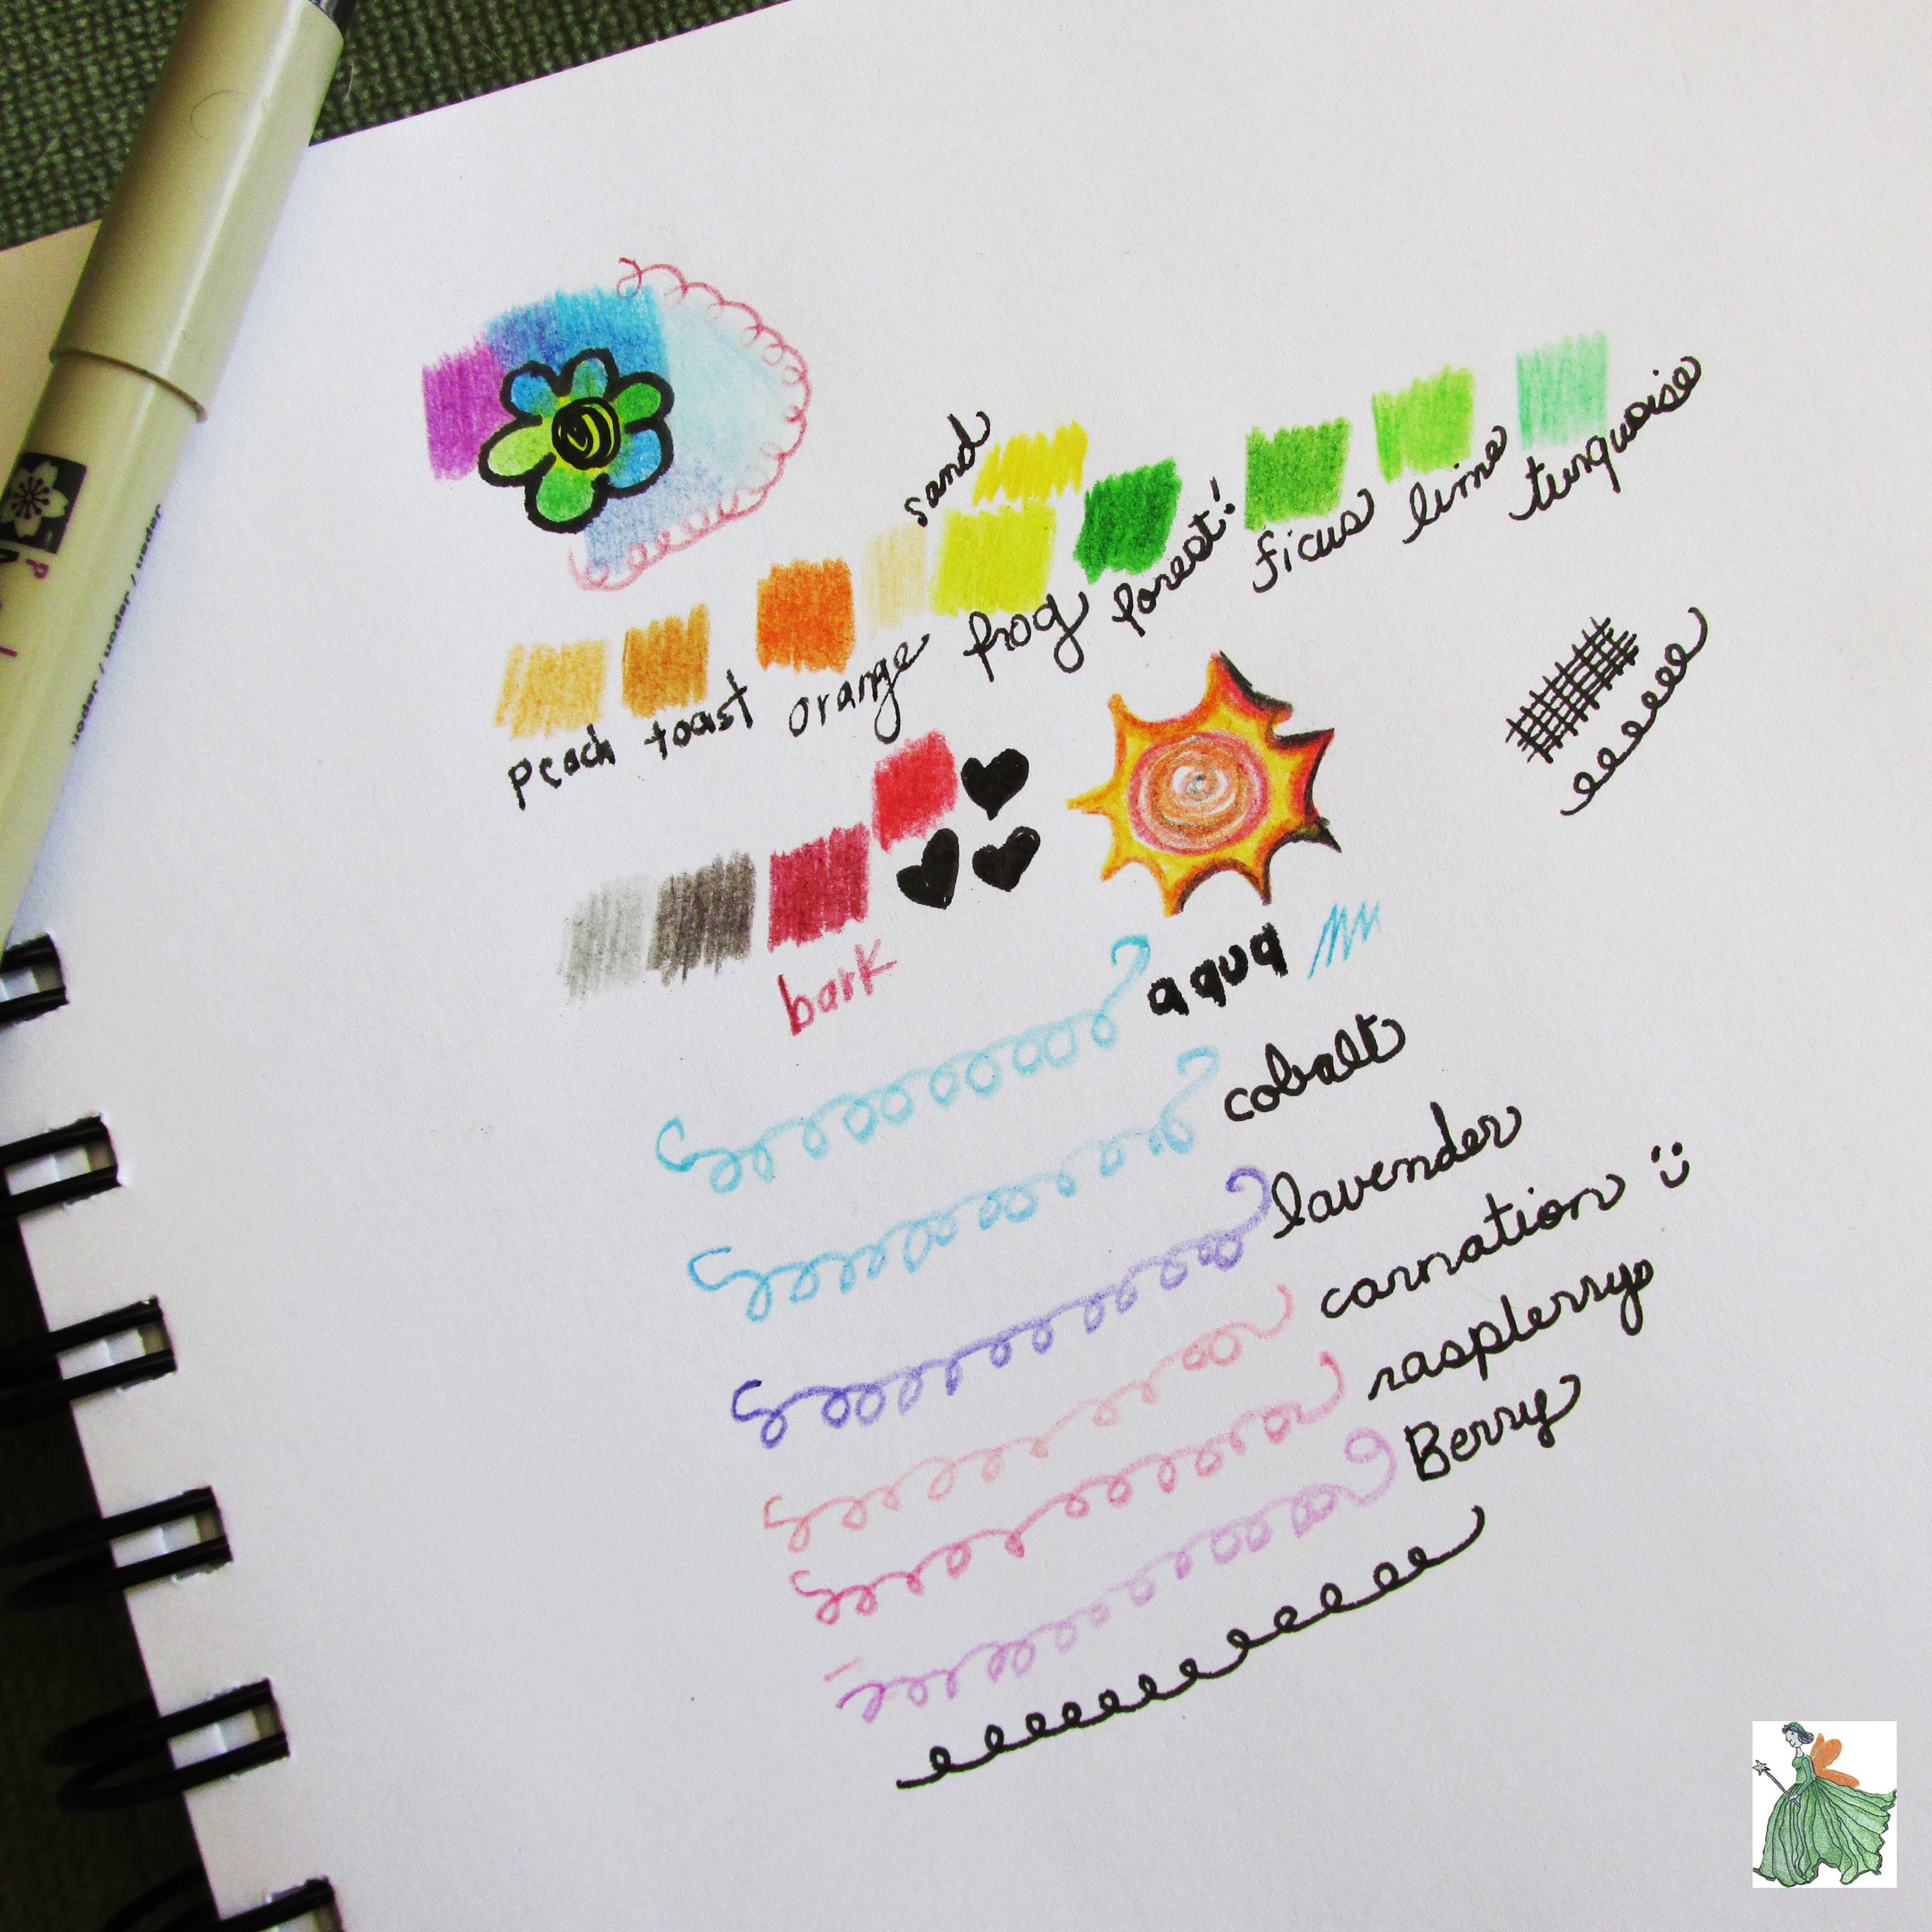 sand
peach toast orange frog forest! ficus lime turquoise
bark
aqua
cobalt
lavender
carnation
raspberry
Berry